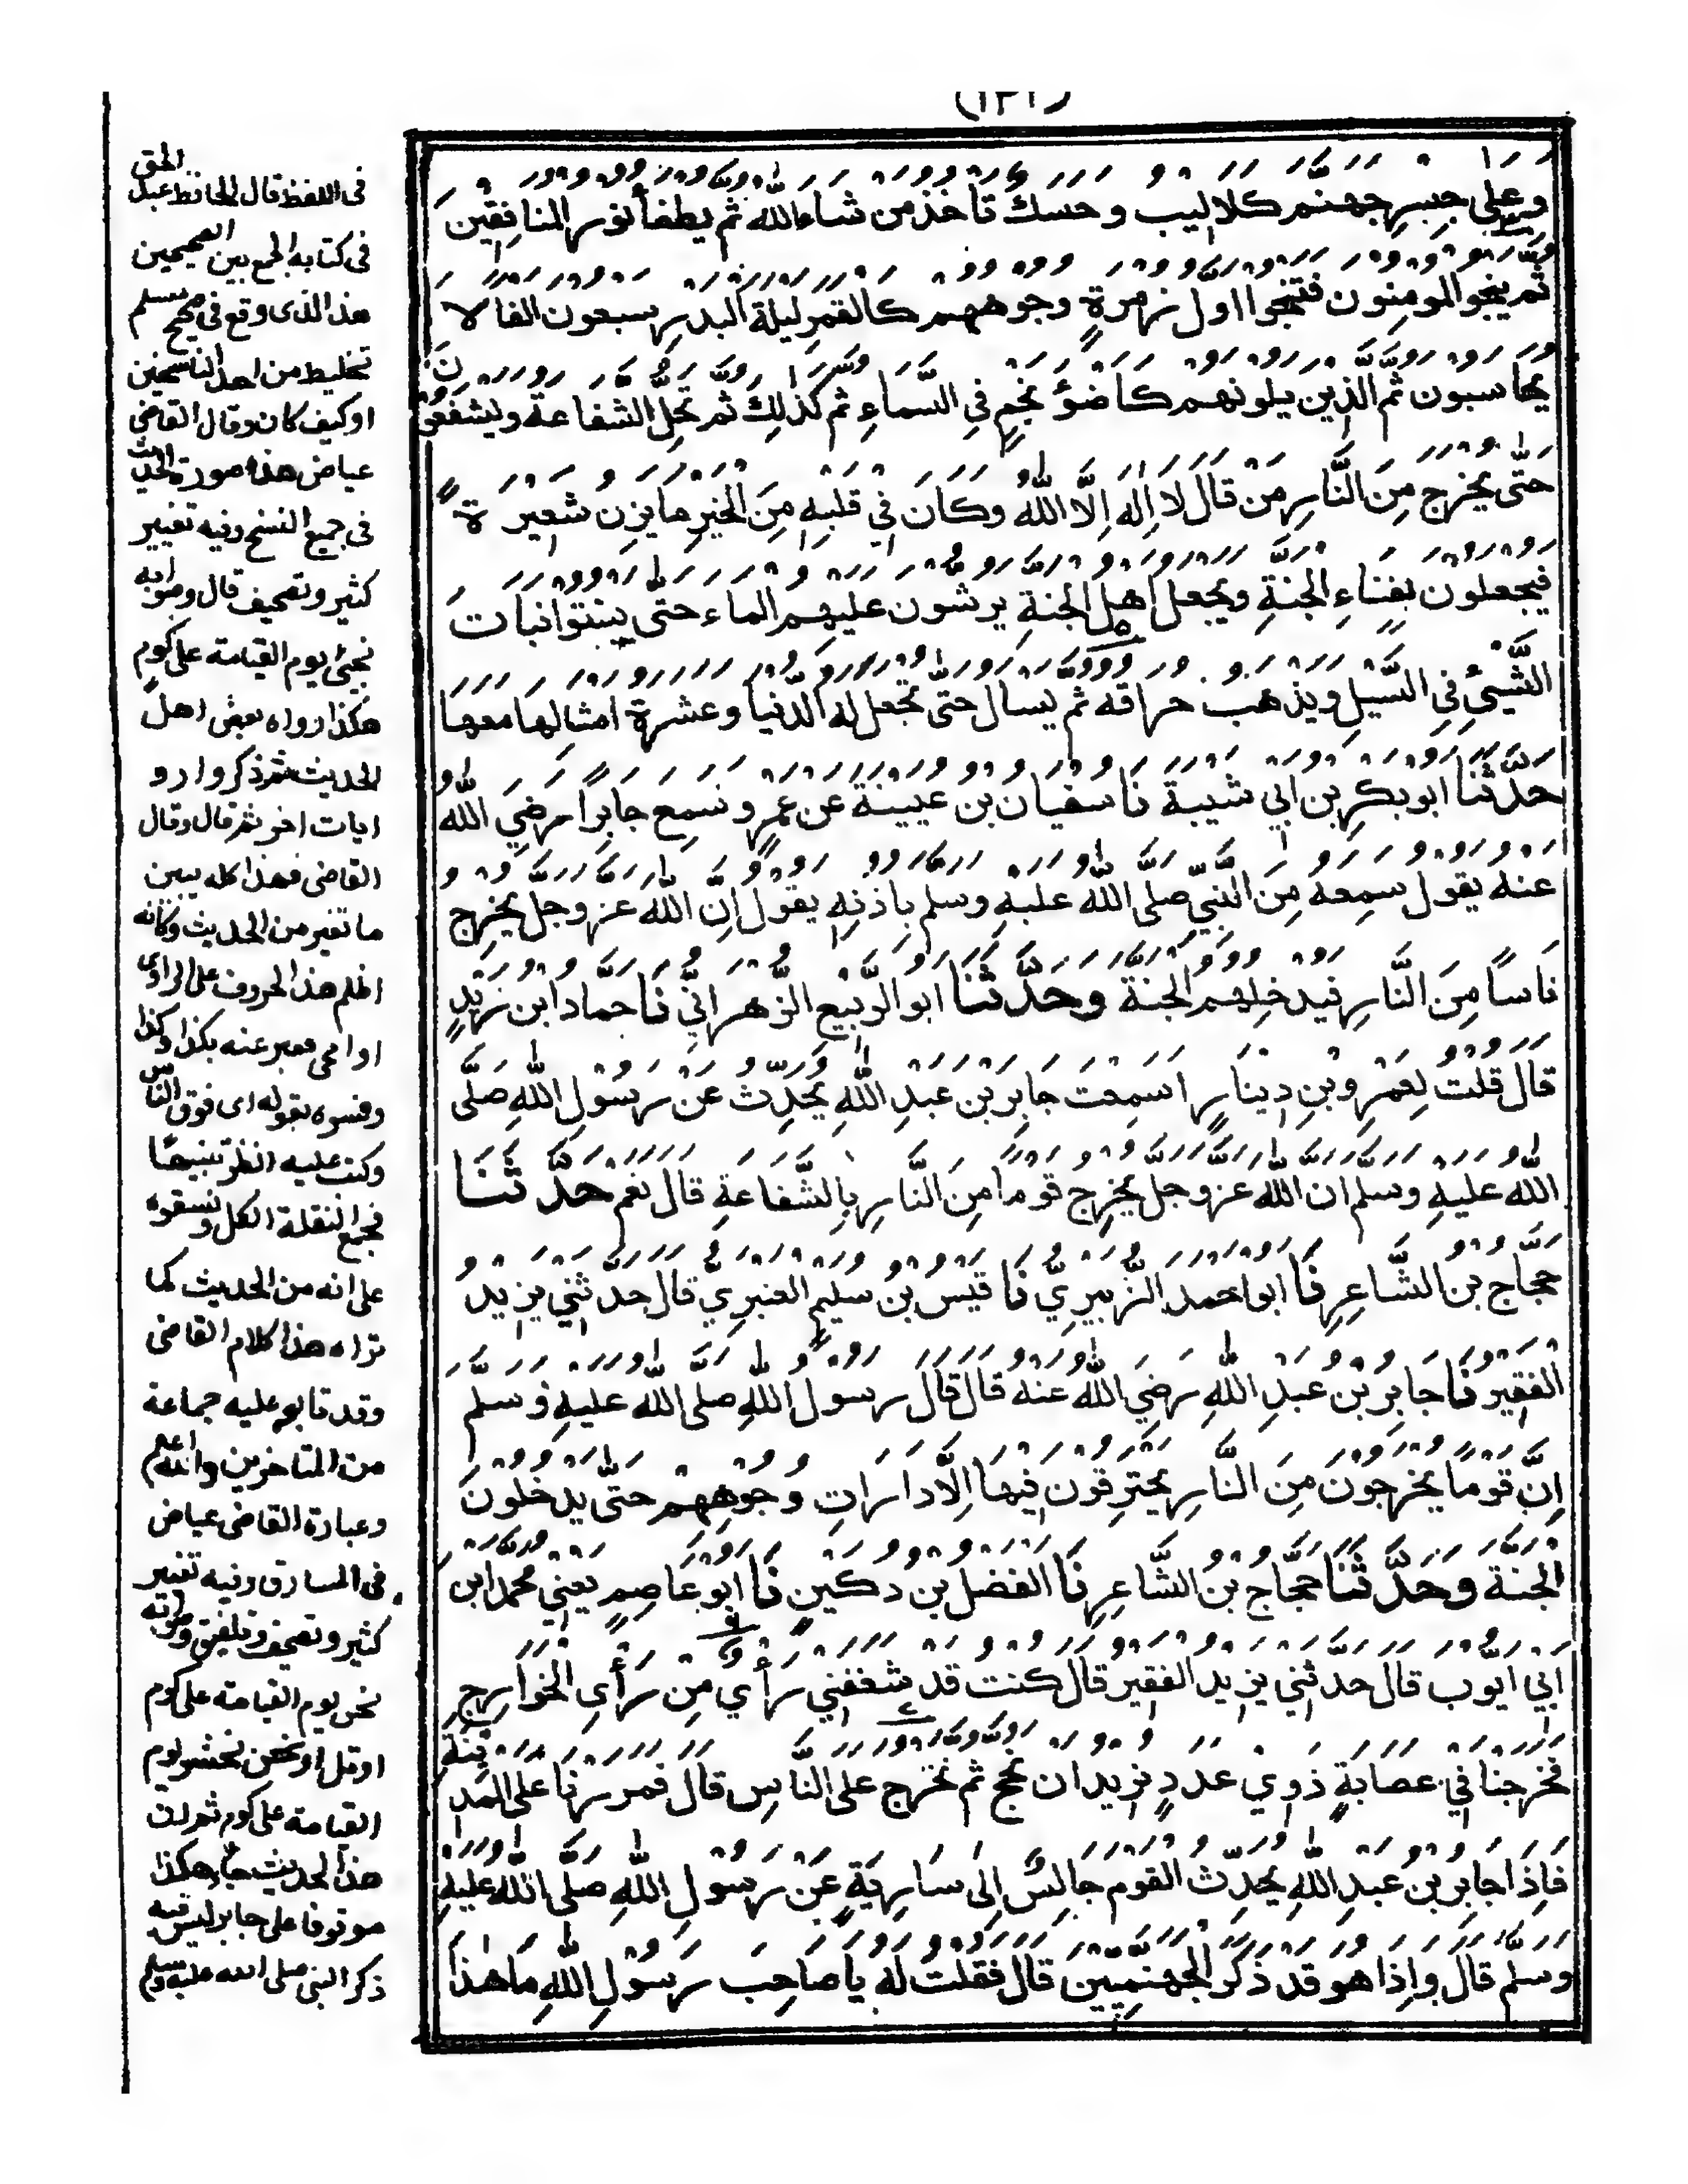 (١٣١)
وعلى جسر جهنم كلاليب وحسك تأخذ من شاء الله ثم يطفأ نور المنافقين
ثم ينجو المومنون فتنجوا اول زمرة وجوههم كالقمر ليلة البدر سبعون الفا لا
يحاسبون ثم الذين يلونهم كاضوء نجم في السماء ثم كذلك ثم تحل الشفاعة ويشفعون
حتى يخرج من النار من قال لا اله الا الله وكان في قلبه من الخير ما يزن شعيرة
فيجعلون بفناء الجنة ويجعل اهل الجنة يرشون عليهم الماء حتى ينبتوا نبات
الشيئ في السيل ويذهب حراقه ثم يسال حتى تجعل له الدنيا وعشرة امثالها معها
حدثنا ابو بكر بن ابي شيبة نا سفيان بن عيينة عن عمرو سمع جابرا رضي الله
عنه يقول سمعه من النبي صلى الله عليه وسلم باذنه يقول ان الله عز وجل يخرج
ناسا من النار فيدخلهم الجنة وحدثنا ابو الربيع الزهراني نا حماد ابن زيد
قال قلت لعمرو بن دينار اسمعت جابر بن عبد الله يحدث عن رسول الله صلى
الله عليه وسلم ان الله عز وجل يخرج قوما من النار بالشفاعة قال نعم حدثنا
حجاج بن الشاعر نا ابو احمد الزبيري نا قيس بن سليم العنبري قال حدثني يزيد
الفقير نا جابر بن عبد الله رضي الله عنه قال قال رسول الله صلى الله عليه وسلم
ان قوما يخرجون من النار يحترقون فيها الا دارات وجوههم حتى يدخلون
الجنة وحدثنا حجاج بن الشاعر نا الفضل بن دكين نا ابو عاصم يعني محمد ابن
ابي ايوب قال حدثني يزيد الفقير قال كنت قد شغفني رأي من رأي الخوارج
فخرجنا في عصابة ذوي عدد نريد ان نحج ثم نخرج على الناس قال فمررنا على المدينة
فاذا جابر بن عبد الله يحدث القوم جالس الى سارية عن رسول الله صلى الله عليه
وسلم قال واذا هو قد ذكر الجهنميين قال فقلت له يا صاحب رسول الله ما هذا
فى اللفظ قال الحافظ عبد الحق
فى كتابه الجمع بين الصحيحين
هذا الذى وقع فى صحيح مسلم
تخليط من احد الناسخين
اوكيف كان وقال القاضى
عياض هذا صورة الحديث
فى جميع النسخ وفيه تغيير
كثير وتصحيف قال وصوابه
نجئ يوم القيامة على كوم
هكذا رواه بعض اهل
الحديث ثم ذكر وا رو
ايات اخر ثم قال وقال
القاضى فهذا كله يبين
ما تغير من الحديث وكانه
اظلم هذا الحروف على الراوى
اوامحى فعبر عنه بكذا وكذا
وفسره بقوله اى فوق الناس
وكتب عليه انظر تنبيها
فجمع النقلة الكل ونسقوه
على انه من الحديث كما
تراه هذا كلام القاضى
وقد تابعه عليه جماعة
من المتاخرين والله اعلم
وعبارة القاضى عياض
فى المسارق وفيه تغيير
كثير وتصحيف وتلفيق وصوابه
نحن يوم القيامة على كوم
القيامة على كوم
هذا الحديث جاء هكذا
موقوفا على جابر ليس فيه
ذكر النبى صلى الله عليه وسلم